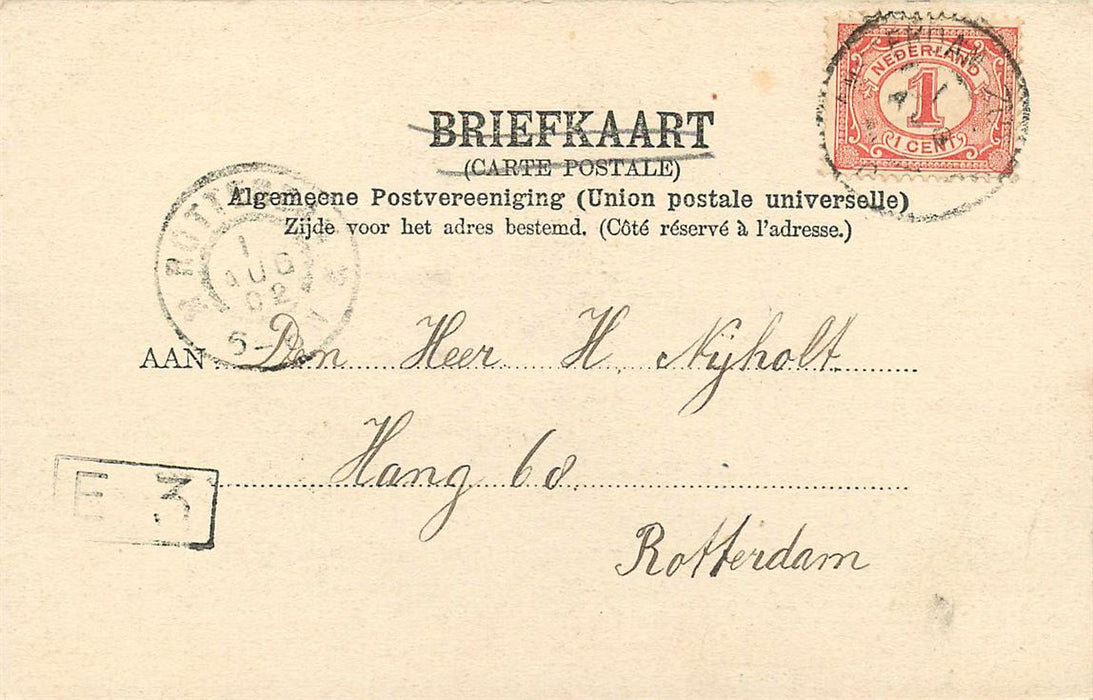 NEDERLAND
1
1 CENT
BRIEFKAART
(CARTE POSTALE)
Algemeene Postvereeniging (Union postale universelle)
Zijde voor het adres bestemd. (Côté réservé à l'adresse.)
1
AUG
02
AAN Den Heer H. Nijholt
Hang 68
E 3
Rotterdam